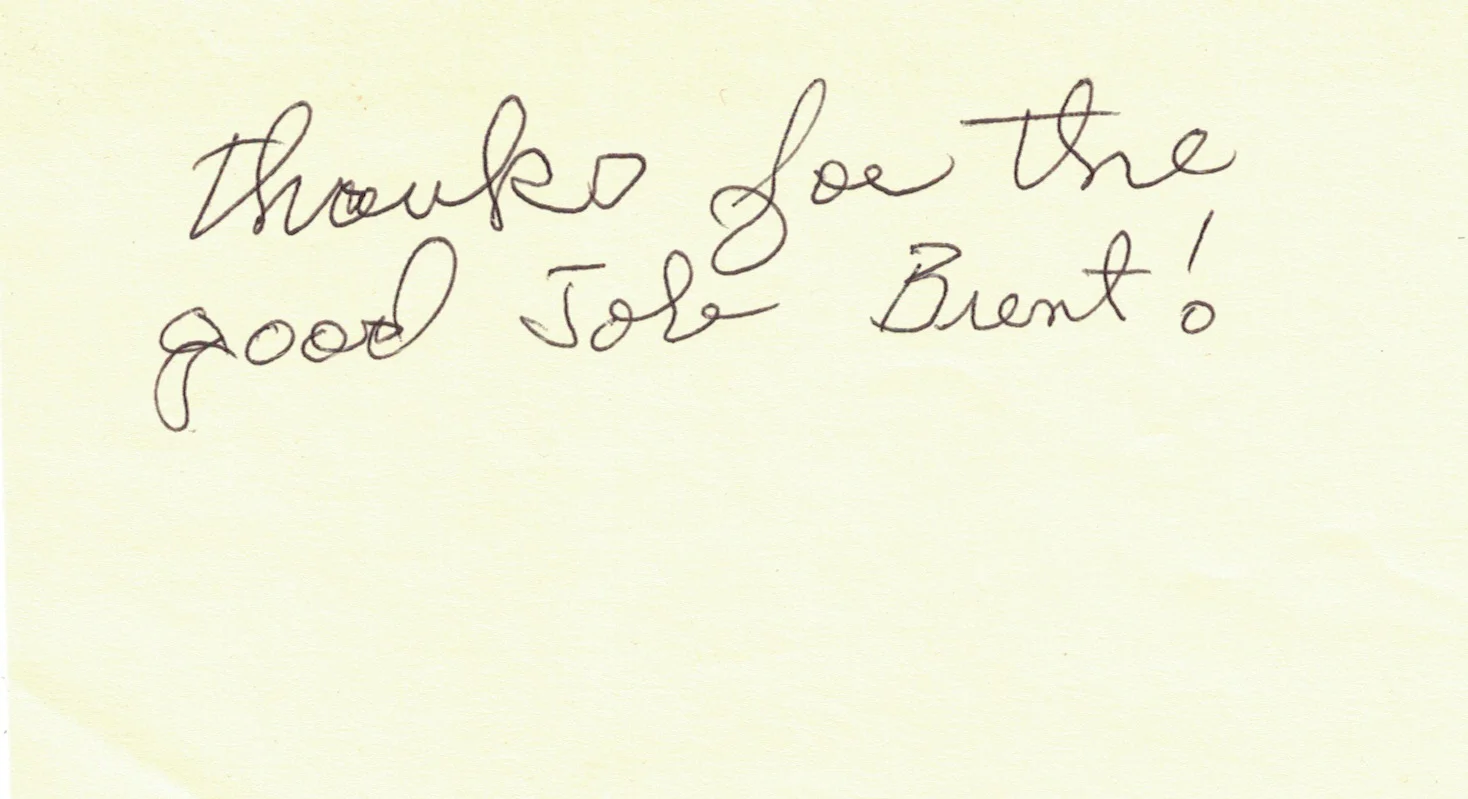 Thanks for the
good Job Brent!